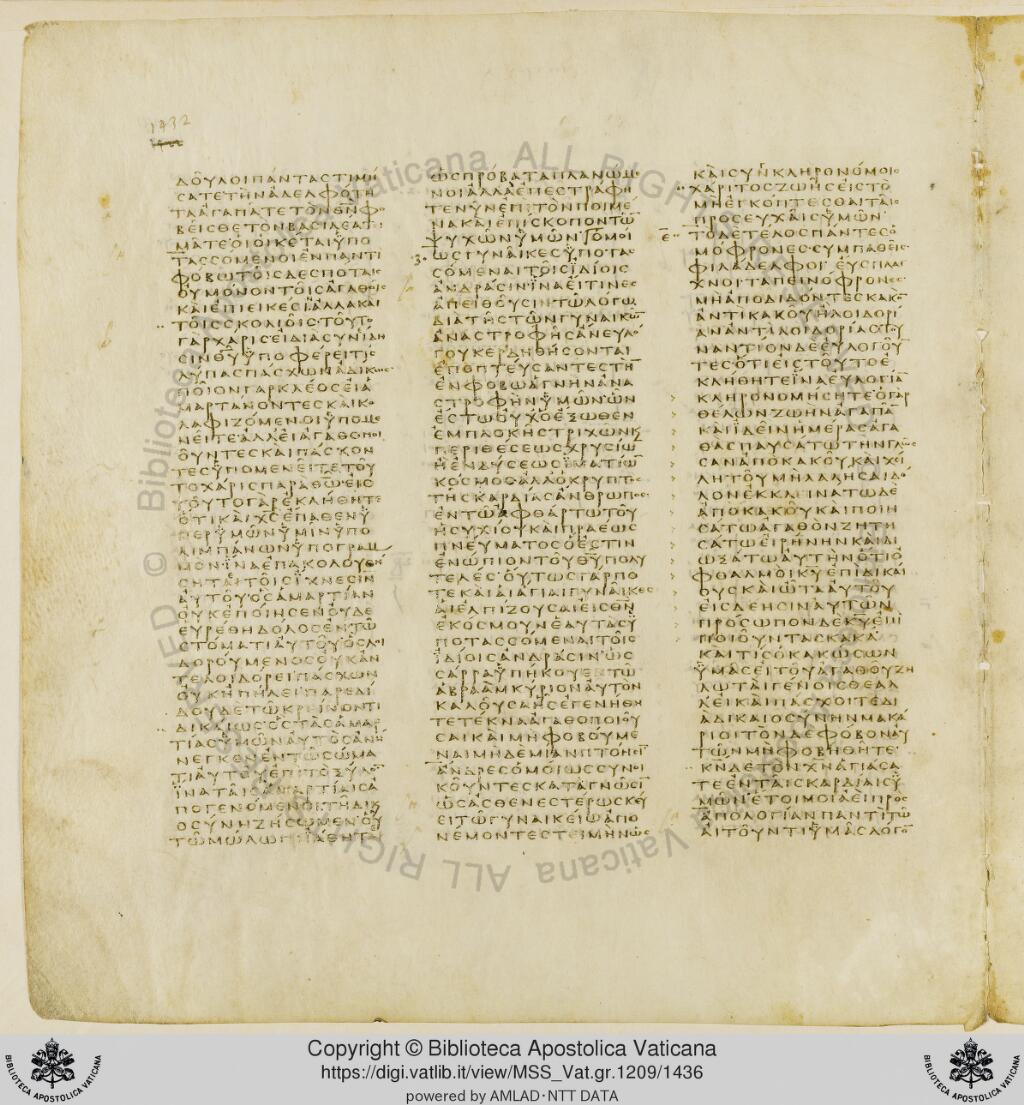 1432
ΔΟΥΛΟΙΠΑΝΤΑϹΤΙΜΗ
ϹΑΤΕΤΗΝΑΔΕΛΦΟΤΗ
ΤΑΑΓΑΠΑΤΕΤΟΝΘ̅Ν̅ΦΟ
ΒΕΙϹΘΕΤΟΝΒΑϹΙΛΕΑΤΙ
ΜΑΤΕΟΙΟΙΚΕΤΑΙΥΠΟ
ΤΑϹϹΟΜΕΝΟΙΕΝΠΑΝΤΙ
ΦΟΒΩΤΟΙϹΔΕϹΠΟΤΑΙϹ
ΟΥΜΟΝΟΝΤΟΙϹΑΓΑΘΟΙϹ
ΚΑΙΕΠΙΕΙΚΕϹΙΑΛΛΑΚΑΙ
ΤΟΙϹϹΚΟΛΙΟΙϹΤΟΥΤΟ
ΓΑΡΧΑΡΙϹΕΙΔΙΑϹΥΝΙΔΗ
ϹΙΝΘ̅Υ̅ΥΠΟΦΕΡΕΙΤΙϹ
ΛΥΠΑϹΠΑϹΧΩΝΑΔΙΚΩϹ
ΠΟΙΟΝΓΑΡΚΛΕΟϹΕΙΑ
ΜΑΡΤΑΝΟΝΤΕϹΚΑΙΚΟ
ΛΑΦΙΖΟΜΕΝΟΙΥΠΟΜΕ
ΝΕΙΤΕΑΛΛΕΙΑΓΑΘΟΠΟΙ
ΟΥΝΤΕϹΚΑΙΠΑϹΧΟΝ
ΤΕϹΥΠΟΜΕΝΕΙΤΕΤΟΥ
ΤΟΧΑΡΙϹΠΑΡΑΘ̅Ω̅ΕΙϹ
ΤΟΥΤΟΓΑΡΕΚΛΗΘΗΤΕ
ΟΤΙΚΑΙΧ̅Ϲ̅ΕΠΑΘΕΝΥ
ΠΕΡΥΜΩΝΥΜΙΝΥΠΟ
ΛΙΜΠΑΝΩΝΥΠΟΓΡΑΜ
ΜΟΝΙΝΑΕΠΑΚΟΛΟΥΘΗ
ϹΗΤΑΙΤΟΙϹΙΧΝΕϹΙΝ
ΑΥΤΟΥΟϹΑΜΑΡΤΙΑΝ
ΟΥΚΕΠΟΙΗϹΕΝΟΥΔΕ
ΕΥΡΕΘΗΔΟΛΟϹΕΝΤΩ
ϹΤΟΜΑΤΙΑΥΤΟΥΟϹΛΟΙ
ΔΟΡΟΥΜΕΝΟϹΟΥΚΑΝ
ΤΕΛΟΙΔΟΡΕΙΠΑϹΧΩΝ
ΟΥΚΗΠΗΛΕΙΠΑΡΕΔΙ
ΔΟΥΔΕΤΩΚΡΕΙΝΟΝΤΙ
ΔΙΚΑΙΩϹΟϹΤΑϹΑΜΑΡ
ΤΙΑϹΥΜΩΝΑΥΤΟϹΑΝΗ
ΝΕΓΚΕΝΕΝΤΩϹΩΜΑ
ΤΙΑΥΤΟΥΕΠΙΤΟΞΥΛΟ̅
ΙΝΑΤΑΙϹΑΜΑΡΤΙΑΙϹΑ
ΠΟΓΕΝΟΜΕΝΟΙΤΗΔΙΚΑΙ
ΟϹΥΝΗΖΗϹΩΜΕΝΟΥ
ΤΩΜΩΛΩΠΙΙΑΘΗΤΕ
ΩϹΠΡΟΒΑΤΑΠΛΑΝΩΜΕ
ΝΟΙΑΛΛΑΕΠΕϹΤΡΑΦΗ
ΤΕΝΥΝΕΠΙΤΟΝΠΟΙΜΕ
ΝΑΚΑΙΕΠΙϹΚΟΠΟΝΤΩ̅
ΨΥΧΩΝΥΜΩΝΟΜΟΙ
ΩϹΓΥΝΑΙΚΕϹΥΠΟΤΑϹ
ϹΟΜΕΝΑΙΤΟΙϹΙΔΙΟΙϹ
ΑΝΔΡΑϹΙΝΙΝΑΕΙΤΙΝΕϹ
ΑΠΕΙΘΟΥϹΙΝΤΩΛΟΓΩ
ΔΙΑΤΗϹΤΩΝΓΥΝΑΙΚΩ̅
ΑΝΑϹΤΡΟΦΗϹΑΝΕΥΛΟ
ΓΟΥΚΕΡΔΗΘΗϹΟΝΤΑΙ
ΕΠΟΠΤΕΥϹΑΝΤΕϹΤΗ̅
ΕΝΦΟΒΩΑΓΝΗΝΑΝΑ
ϹΤΡΟΦΗΝΥΜΩΝΩΝ
ΕϹΤΩΟΥΧΟΕΞΩΘΕΝ
ΕΜΠΛΟΚΗϹΤΡΙΧΩΝΚ
ΠΕΡΙΘΕϹΕΩϹΧΡΥϹΙΩ̅
ΗΕΝΔΥϹΕΩϹΙΜΑΤΙΩ̅
ΚΟϹΜΟϹΑΛΛΟΚΡΥΠΤΟϹ
ΤΗϹΚΑΡΔΙΑϹΑΝΘΡΩΠΟϹ
ΕΝΤΩΑΦΘΑΡΤΩΤΟΥ
ΗϹΥΧΙΟΥΚΑΙΠΡΑΕΩϹ
ΠΝΕΥΜΑΤΟϹΟΕϹΤΙΝ
ΕΝΩΠΙΟΝΤΟΥΘ̅Υ̅ΠΟΛΥ
ΤΕΛΕϹΟΥΤΩϹΓΑΡΠΟ
ΤΕΚΑΙΑΙΑΓΙΑΙΓΥΝΑΙΚΕϹ
ΑΙΕΛΠΙΖΟΥϹΑΙΕΙϹΘ̅Ν̅
ΕΚΟϹΜΟΥΝΕΑΥΤΑϹΥ
ΠΟΤΑϹϹΟΜΕΝΑΙΤΟΙϹ
ΙΔΙΟΙϹΑΝΔΡΑϹΙΝΩϹ
ϹΑΡΡΑΥΠΗΚΟΥΕΝΤΩ
ΑΒΡΑΑΜΚΥΡΙΟΝΑΥΤΟΝ
ΚΑΛΟΥϹΑΗϹΕΓΕΝΗΘΗ
ΤΕΤΕΚΝΑΑΓΑΘΟΠΟΙΟΥ
ϹΑΙΚΑΙΜΗΦΟΒΟΥΜΕ
ΝΑΙΜΗΔΕΜΙΑΝΠΤΟΗϹΙ̅
ΑΝΔΡΕϹΟΜΟΙΩϹϹΥΝΟΙ
ΚΟΥΝΤΕϹΚΑΤΑΓΝΩϹΙ̅
ΩϹΑϹΘΕΝΕϹΤΕΡΩϹΚΕΥ
ΕΙΤΩΓΥΝΑΙΚΕΙΩΑΠΟ
ΝΕΜΟΝΤΕϹΤΕΙΜΗΝΩϹ
ΚΑΙϹΥΝΚΛΗΡΟΝΟΜΟΙϹ
ΧΑΡΙΤΟϹΖΩΗϹΕΙϹΤΟ
ΜΗΕΓΚΟΠΤΕϹΘΑΙΤΑΙϹ
ΠΡΟϹΕΥΧΑΙϹΥΜΩΝ
ΤΟΔΕΤΕΛΟϹΠΑΝΤΕϹΟ
ΜΟΦΡΟΝΕϹϹΥΜΠΑΘΕΙϹ
ΦΙΛΑΔΕΛΦΟΙΕΥϹΠΛΑΓ
ΧΝΟΙΤΑΠΕΙΝΟΦΡΟΝΕϹ
ΜΗΑΠΟΔΙΔΟΝΤΕϹΚΑΚΟ̅
ΑΝΤΙΚΑΚΟΥΗΛΟΙΔΟΡΙ
ΑΝΑΝΤΙΛΟΙΔΟΡΙΑϹΤΟΥ
ΝΑΝΤΙΟΝΔΕΕΥΛΟΓΟΥ̅
ΤΕϹΟΤΙΕΙϹΤΟΥΤΟΕ
ΚΛΗΘΗΤΕΙΝΑΕΥΛΟΓΙΑ̅
ΚΛΗΡΟΝΟΜΗϹΗΤΕΟΓΑΡ
ΘΕΛΩΝΖΩΗΝΑΓΑΠΑ̅
ΚΑΙΙΔΕΙΝΗΜΕΡΑϹΑΓΑ
ΘΑϹΠΑΥϹΑΤΩΤΗΝΓΛΩϹ
ϹΑΝΑΠΟΚΑΚΟΥΚΑΙΧΕΙ
ΛΗΤΟΥΜΗΛΑΛΗϹΑΙΔΟ
ΛΟΝΕΚΚΛΕΙΝΑΤΩΔΕ
ΑΠΟΚΑΚΟΥΚΑΙΠΟΙΗ
ϹΑΤΩΑΓΑΘΟΝΖΗΤΗ
ϹΑΤΩΕΙΡΗΝΗΝΚΑΙΔΙ
ΩΞΑΤΩΑΥΤΗΝΟΤΙΟ
ΦΘΑΛΜΟΙΚ̅Υ̅ΕΠΙΔΙΚΑΙ
ΟΥϹΚΑΙΩΤΑΑΥΤΟΥ
ΕΙϹΔΕΗϹΙΝΑΥΤΩΝ
ΠΡΟϹΩΠΟΝΔΕΚ̅Υ̅ΕΠΙ
ΠΟΙΟΥΝΤΑϹΚΑΚΑ
ΚΑΙΤΙϹΟΚΑΚΩϹΩΝ
ΥΜΑϹΕΙΤΟΥΑΓΑΘΟΥΖΗ
ΛΩΤΑΙΓΕΝΟΙϹΘΕΑΛ
ΛΕΙΚΑΙΠΑϹΧΟΙΤΕΔΙ
ΑΔΙΚΑΙΟϹΥΝΗΝΜΑΚΑ
ΡΙΟΙΤΟΝΔΕΦΟΒΟΝΑΥ
ΤΩΝΜΗΦΟΒΗΘΗΤΕ
Κ̅Ν̅ΔΕΤΟΝΧ̅Ν̅ΑΓΙΑϹΑ
ΤΕΕΝΤΑΙϹΚΑΡΔΙΑΙϹΥ
ΜΩΝΕΤΟΙΜΟΙΑΕΙΠΡΟϹ
ΑΠΟΛΟΓΙΑΝΠΑΝΤΙΤΩ
ΑΙΤΟΥΝΤΙΥΜΑϹΛΟΓΟ̅
Copyright © Biblioteca Apostolica Vaticana
https://digi.vatlib.it/view/MSS_Vat.gr.1209/1436
powered by AMLAD·NTT DATA